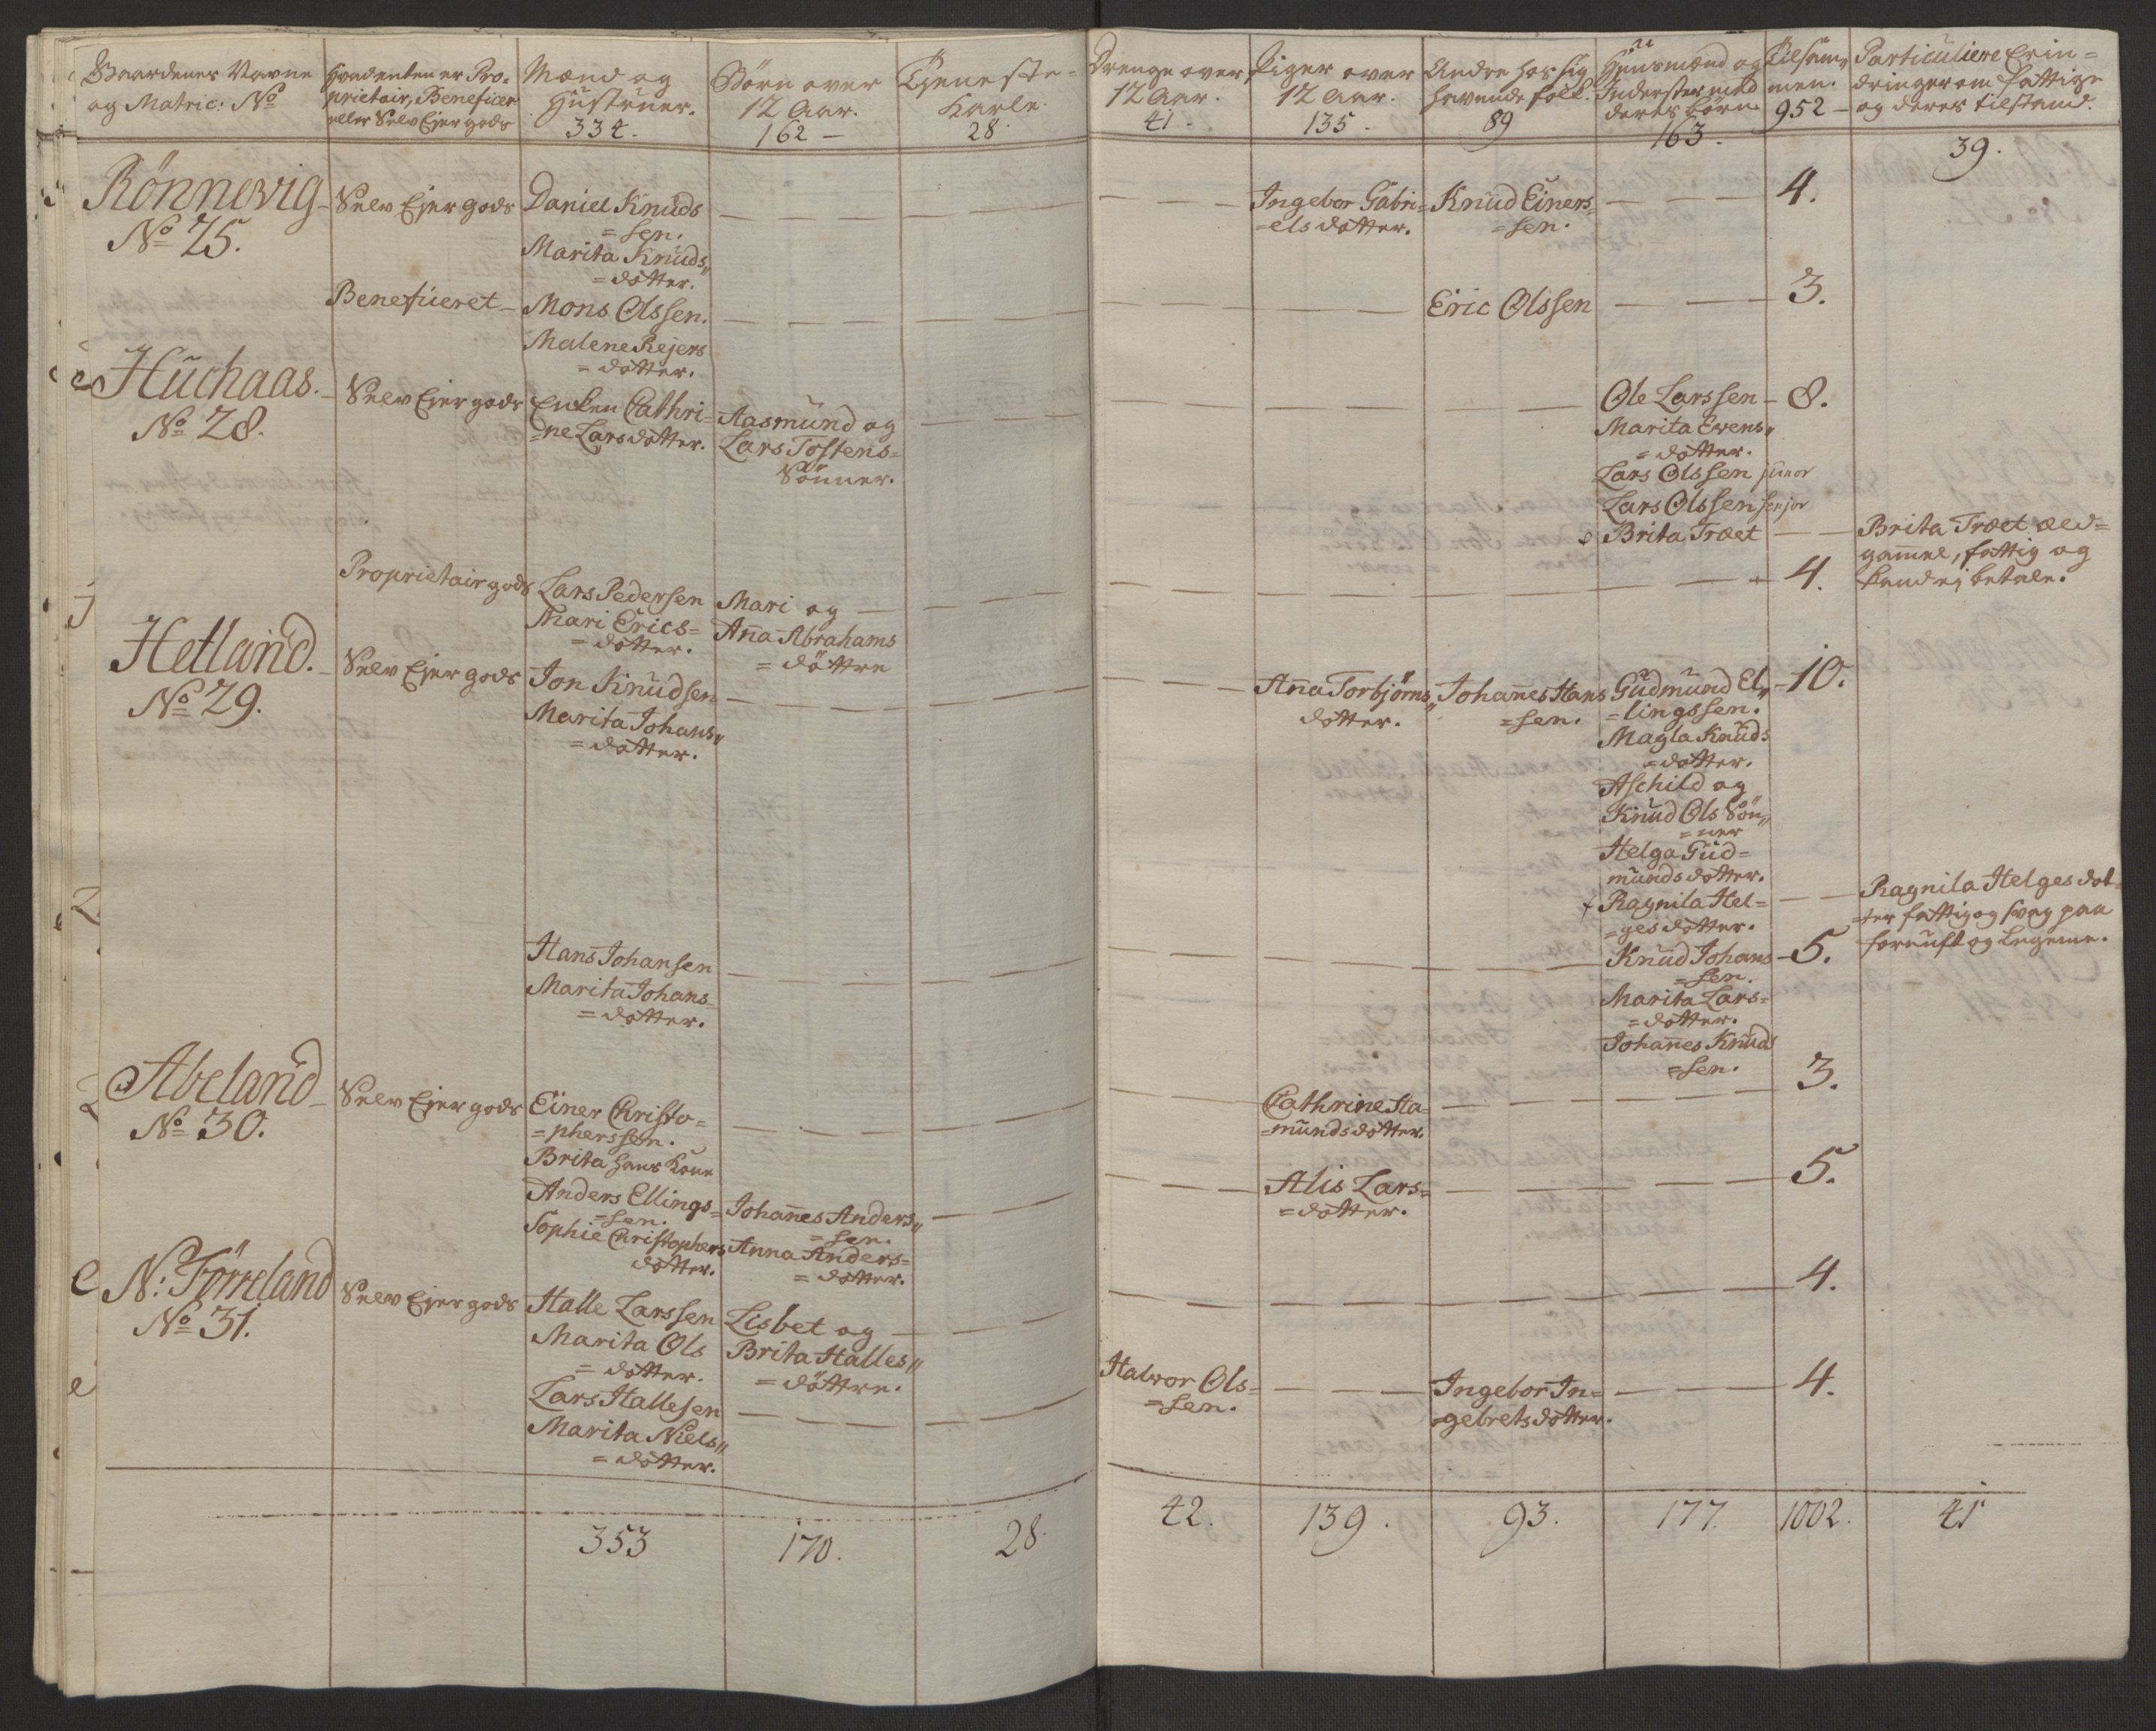 Gaardenes Navne
og Matric: No
Hvadenten er Pro-
prietair, Beneficeret
eller Selv Ejer gods
Mænd og
Hustruer.
334.
Börn over
12 Aar.
162 –
Tieneste-
Karle.
28.
Drenge over
12 Aar.
41.
Piger over
12 Aar.
135.
Andre hos sig
havende folk.
89
Huusmænd og
Inderster med
deres börn.
163.
Tilsam-
men.
952 –
Particuliere Erin-
dringer om fattige
og deres tilstand.
39.
Rönnevig
No 25.
Selv Ejer gods
Daniel Knuds
= sen.
Marita Knuds„
= dotter.
Ingebor Gabri=
=els dotter.
Knud Einers=
= sen.
4.
Beneficeret
Mons Olssen.
Malene Rejers
= dotter.
Eric Olssen
3.
Huchaas.
No 28.
Selv Ejer gods
Enken Cathri-
=ne Larsdotter.
Aasmund og
Lars Tostens=
Sönner.
Ole Larssen
Marita Evens„
= dotter.
Lars Olssen junior
Lars Olssen senjor
Brita Træet
8.
Brita Træet æld=
gammel, fattig og
kand ej betale.
Proprietair gods
Lars Pedersen
Mari Erics=
= dotter.
Mari og
Anna Abrahams
= döttre
4.
Hetland.
No 29.
Selv Ejer gods
Jon Knudsen
Marita Johans„
= dotter.
Anna Torbjörns„
dotter.
Johannes Hans
= sen.
Gudmund El„
= lingssen.
Magla Knuds
= dotter.
Aschild og
Knud Ols Sön„
= ner
Helga Gud=
munds dotter.
Ragnila Hel=
= ges dotter.
10.
Ragnila Helges dot=
=ter fattig og svag paa
fornuft og Legeme.
Hans Johansen
Marita Johans=
= dotter.
Knud Johans
= sen.
Marita Lars=
= dotter.
Johannes Knuds
= sen.
5.
Abeland
No 30.
Selv Ejer gods
Einer Christo=
= pherssen.
Brita hans Kone
Cathrine Aa=
=munds dotter.
3.
Anders Ellings=
= sen.
Sophie Christophers
dotter.
Johannes Anders„
= sen.
Anna Anders=
= dotter.
Alis Lars=
= dotter.
5.
N: Förreland
No 31.
Selv Ejer gods
Halle Larssen
Marita Ols
= dotter.
Lisbet og
Brita Halles„
= döttre.
4.
Lars Hallesen
Marita Niels„
= dotter.
Halvor Ols=
= sen.
Ingebor In=
=gebrets dotter.
4.
353
170.
28.
42.
139.
93.
177.
1002.
41